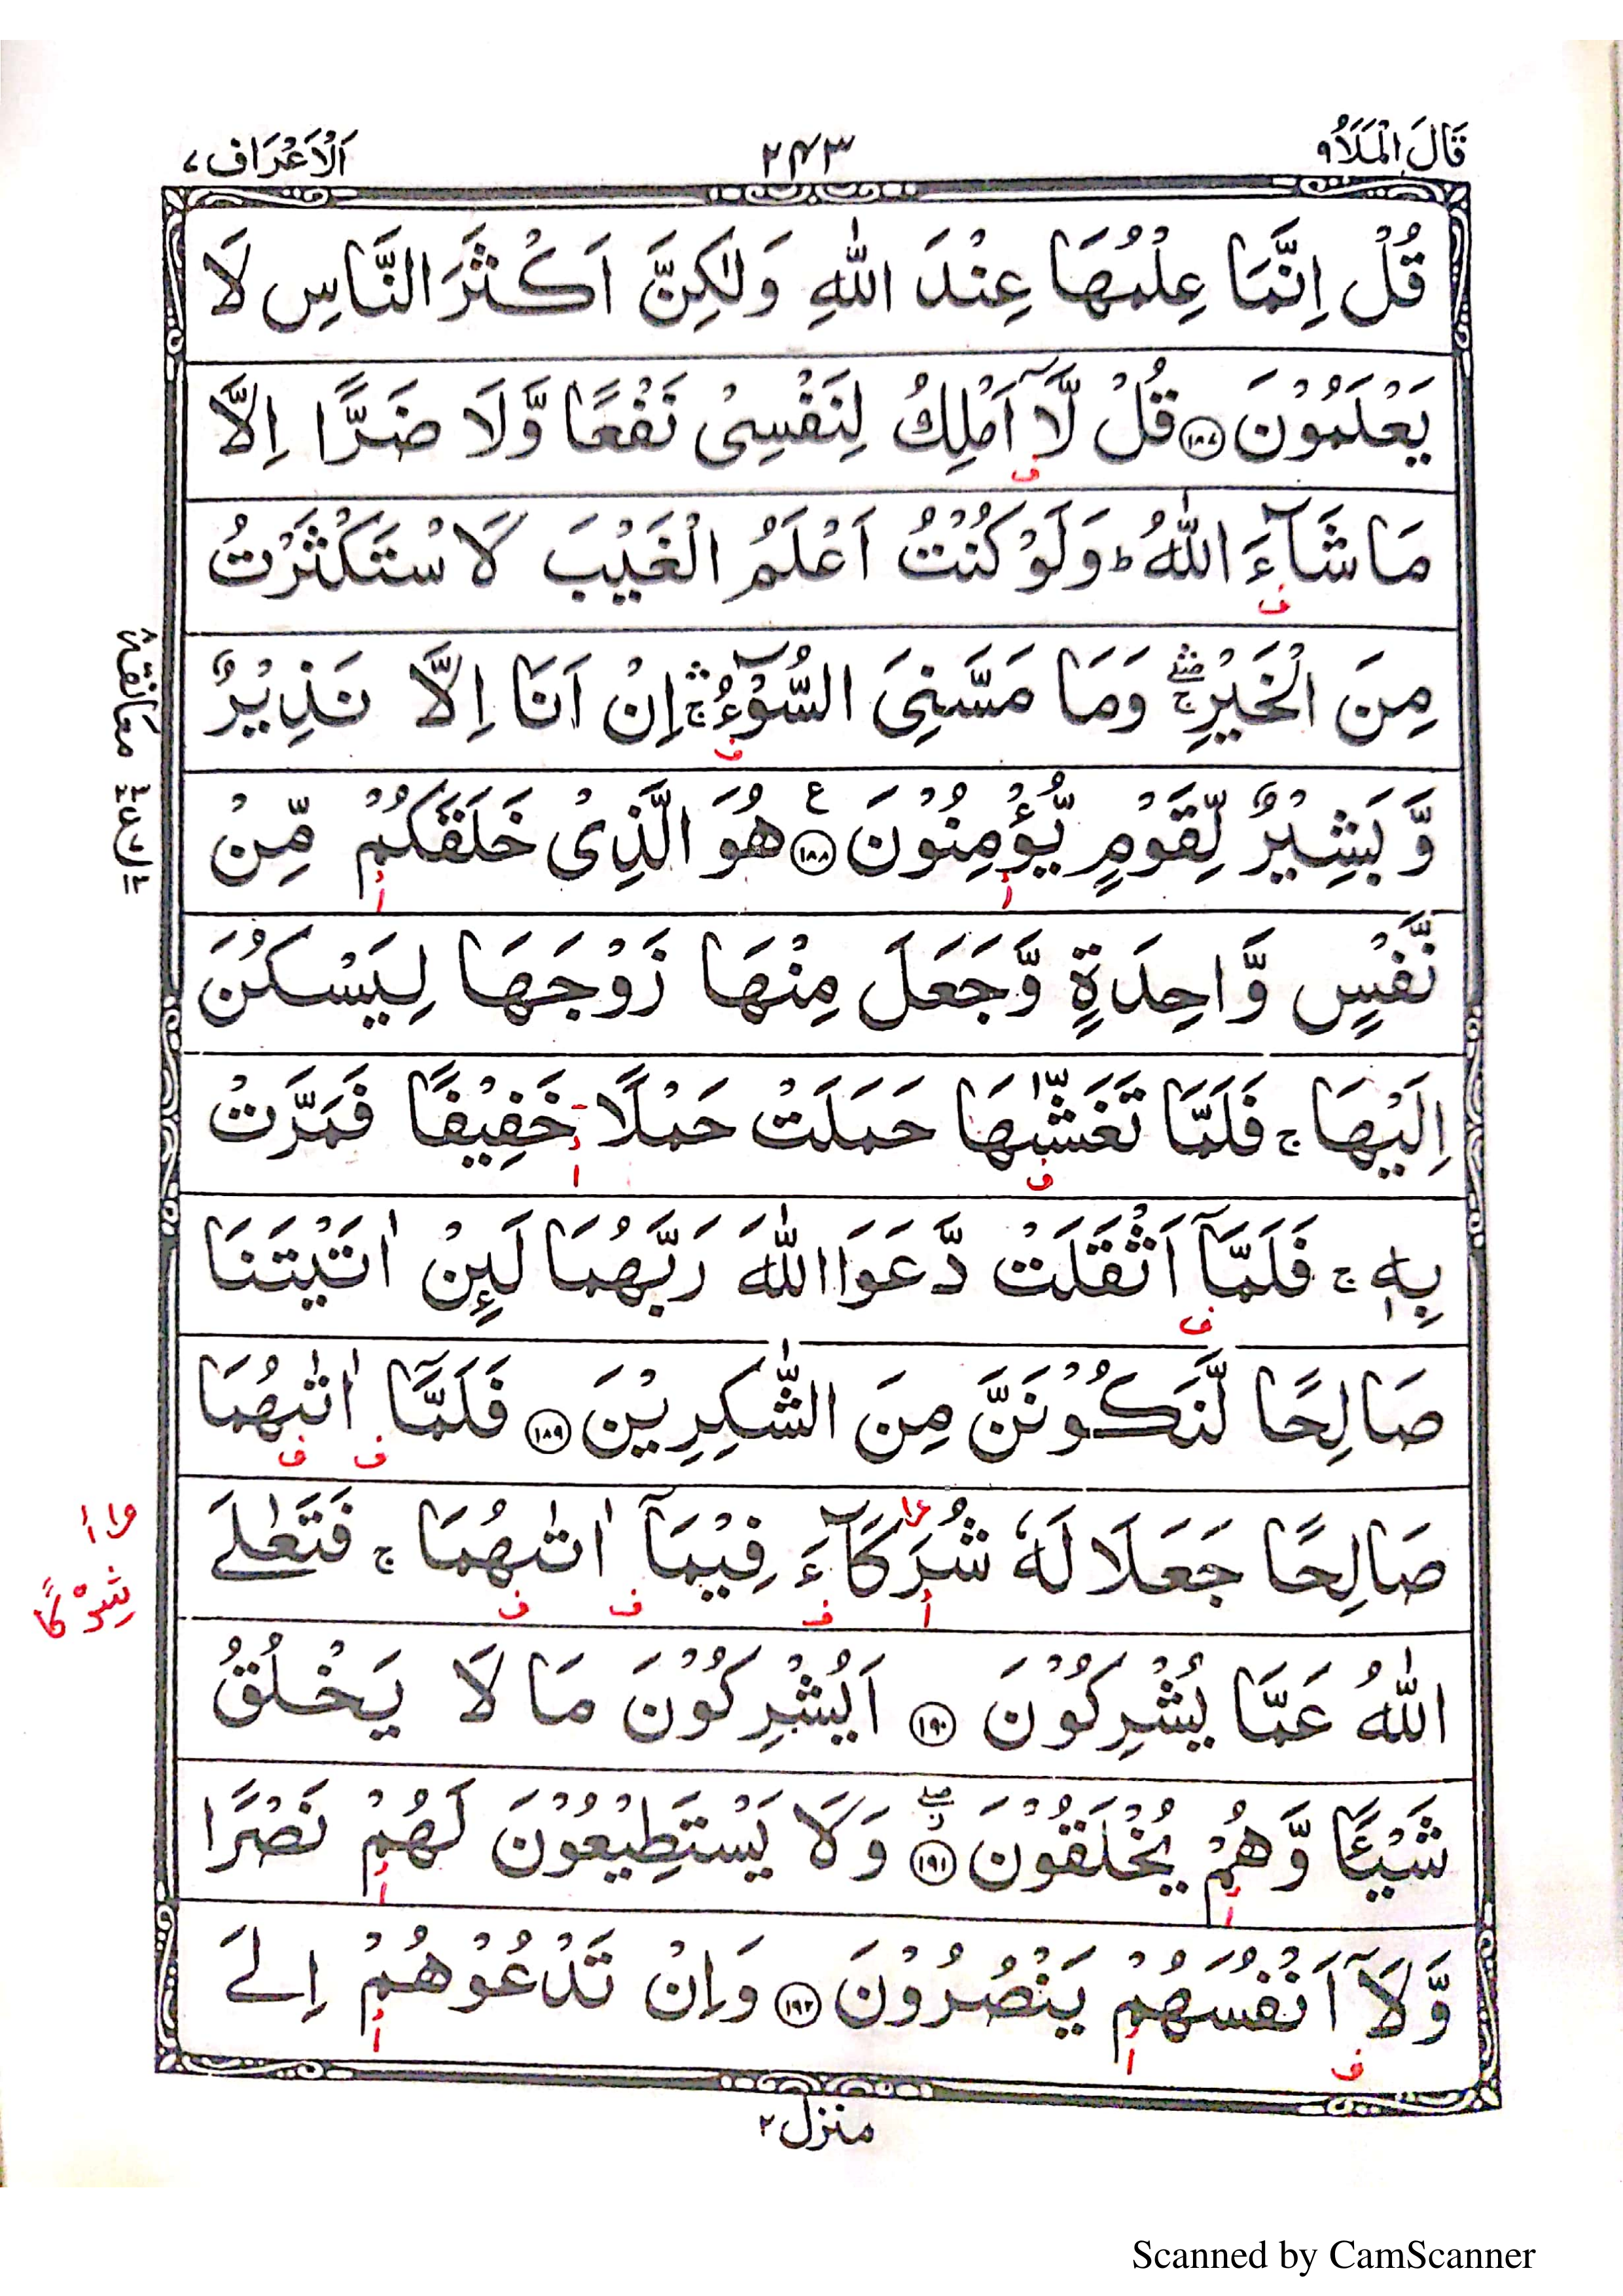 قَالَ الْمَلَاُ ٩
٢٤٣
اَلْاَعْرَاف ٧
قُلْ اِنَّمَا عِلْمُهَا عِنْدَ اللّٰهِ وَلٰكِنَّ اَكْثَرَ النَّاسِ لَا
يَعْلَمُوْنَ ١٨٧ قُلْ لَّآ اَمْلِكُ لِنَفْسِىْ نَفْعًا وَّلَا ضَرًّا اِلَّا
مَا شَآءَ اللّٰهُ ؕ وَلَوْ كُنْتُ اَعْلَمُ الْغَيْبَ لَاسْتَكْثَرْتُ
مِنَ الْخَيْرِ ۛۚ وَمَا مَسَّنِىَ السُّوْٓءُ ۛۚ اِنْ اَنَا اِلَّا نَذِيْرٌ
وَّبَشِيْرٌ لِّقَوْمٍ يُّؤْمِنُوْنَ ١٨٨ ع هُوَ الَّذِىْ خَلَقَكُمْ مِّنْ
نَّفْسٍ وَّاحِدَةٍ وَّجَعَلَ مِنْهَا زَوْجَهَا لِيَسْكُنَ
اِلَيْهَا ۚ فَلَمَّا تَغَشّٰىهَا حَمَلَتْ حَمْلًا خَفِيْفًا فَمَرَّتْ
بِهٖ ۚ فَلَمَّآ اَثْقَلَتْ دَّعَوَا اللّٰهَ رَبَّهُمَا لَئِنْ اٰتَيْتَنَا
صَالِحًا لَّنَكُوْنَنَّ مِنَ الشّٰكِرِيْنَ ١٨٩ فَلَمَّآ اٰتٰىهُمَا
صَالِحًا جَعَلَا لَهٗ شُرَكَآءَ فِيْمَآ اٰتٰىهُمَا ۚ فَتَعٰلَى
اللّٰهُ عَمَّا يُشْرِكُوْنَ ١٩٠ اَيُشْرِكُوْنَ مَا لَا يَخْلُقُ
شَيْئًا وَّهُمْ يُخْلَقُوْنَ ١٩١ وَلَا يَسْتَطِيْعُوْنَ لَهُمْ نَصْرًا
وَّلَآ اَنْفُسَهُمْ يَنْصُرُوْنَ ١٩٢ وَاِنْ تَدْعُوْهُمْ اِلَى
شِرْكًا
منزل ٢
Scanned by CamScanner